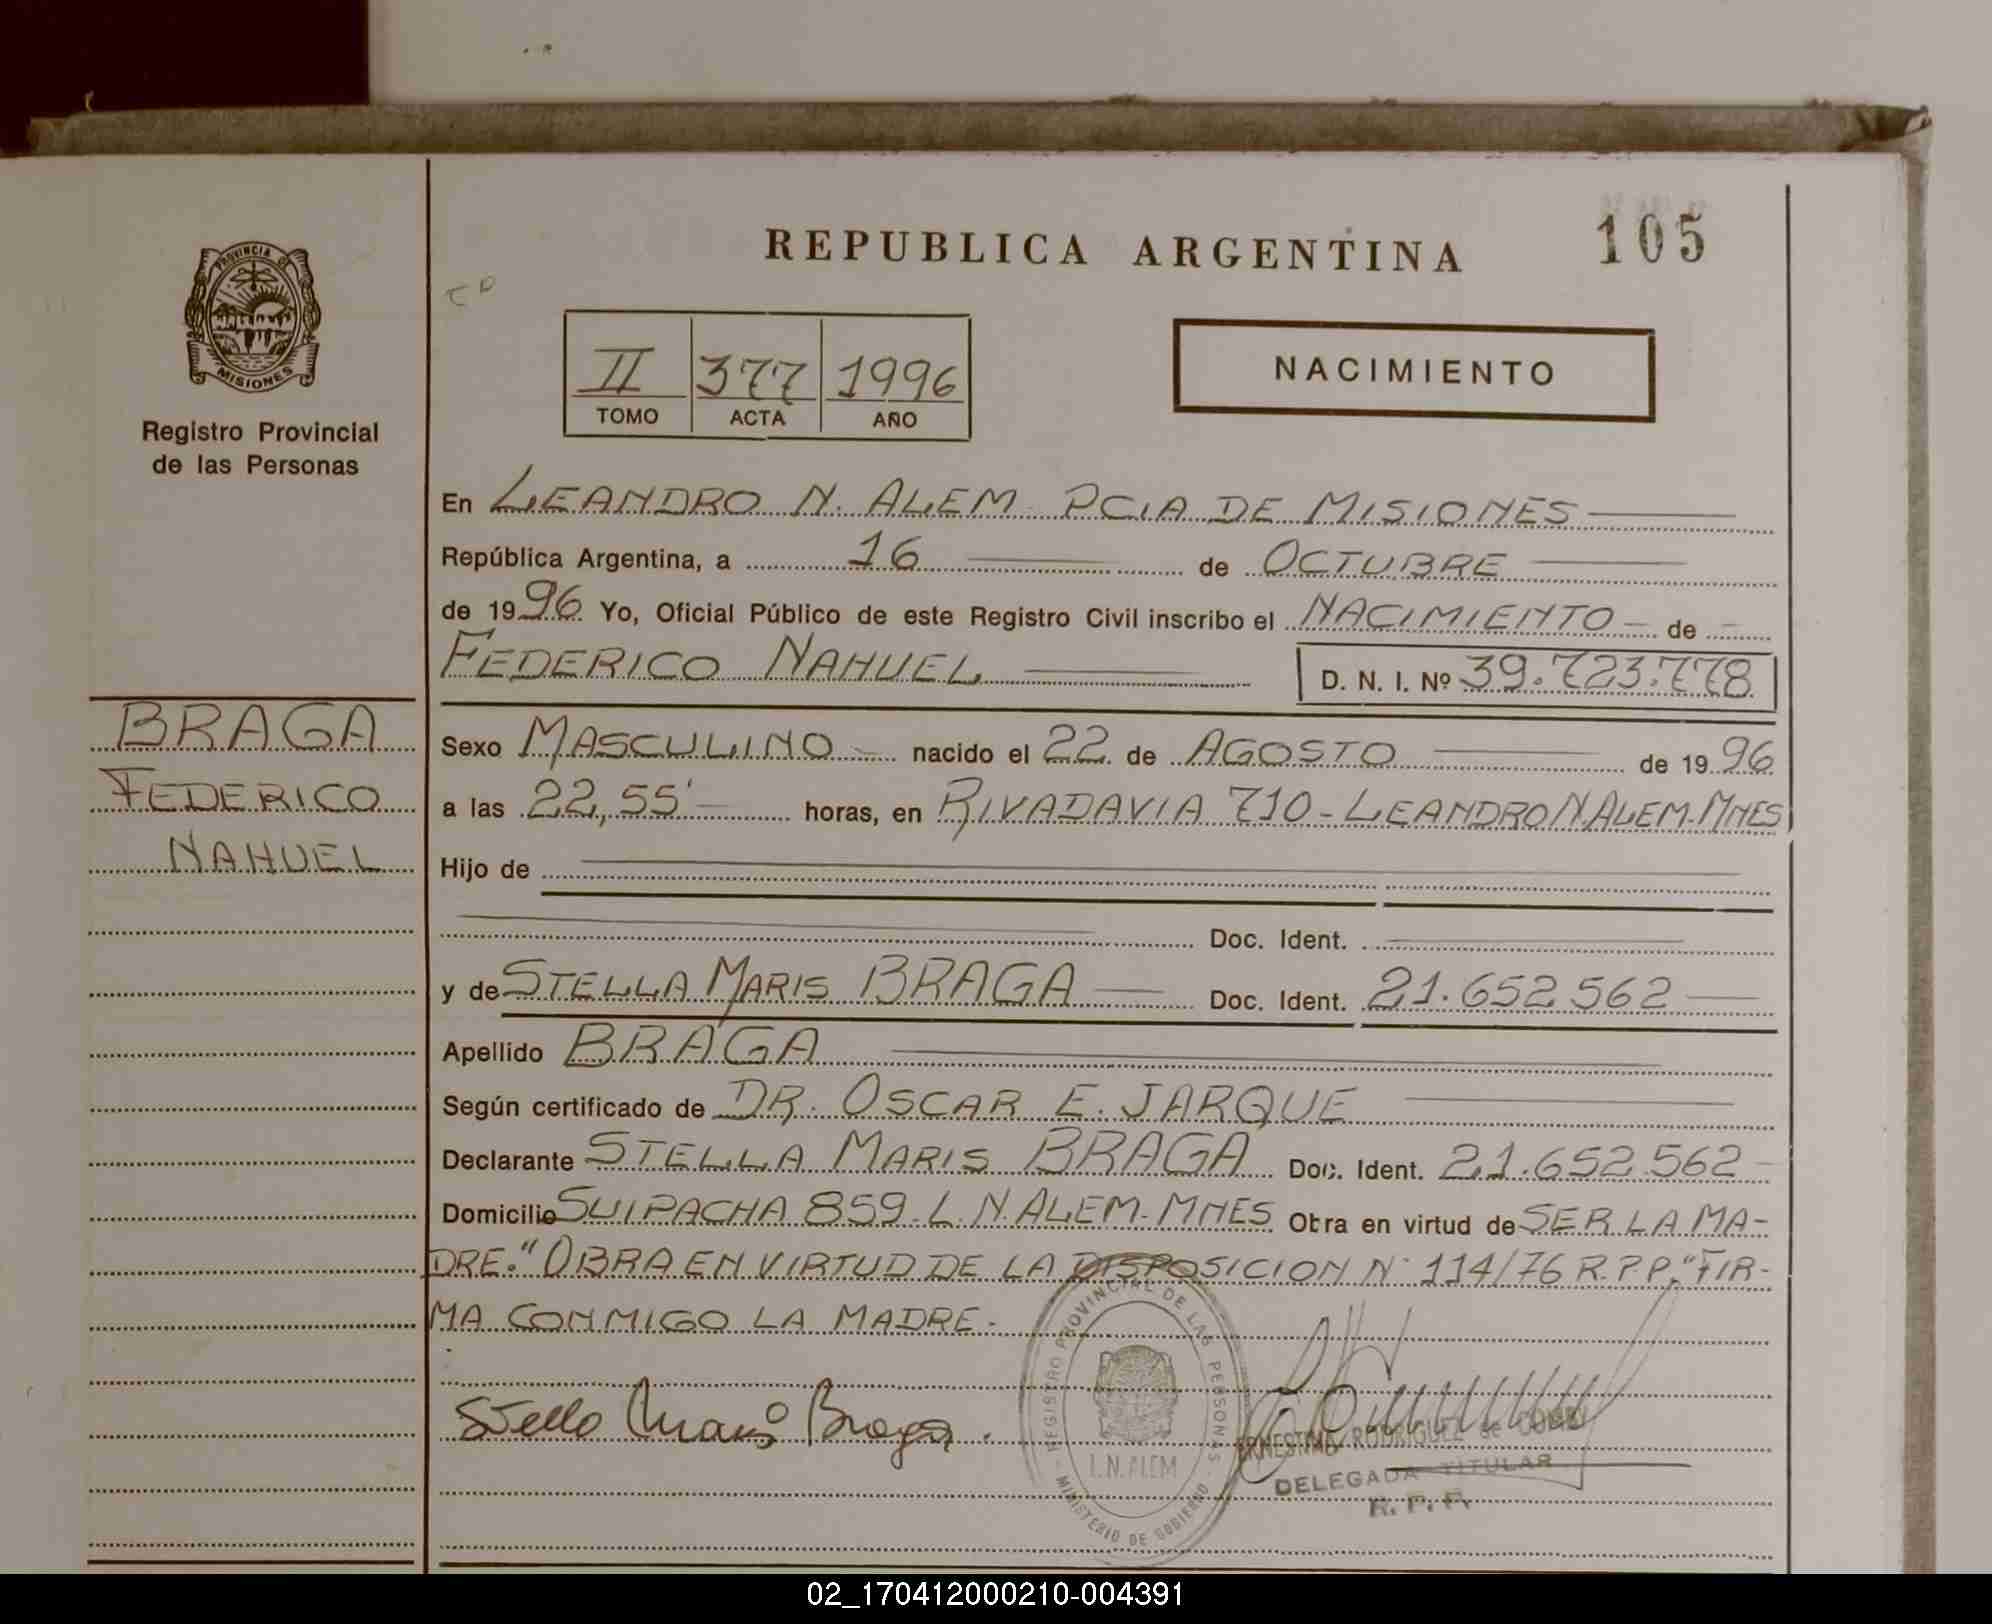 PROVINCIA DE
MISIONES
Registro Provincial
de las Personas
REPUBLICA ARGENTINA
105
II 377 1996
TOMO ACTA AÑO
NACIMIENTO
En LEANDRO N. ALEM PCIA DE MISIONES
República Argentina, a 16 de OCTUBRE
de 1996 Yo, Oficial Público de este Registro Civil inscribo el NACIMIENTO de
FEDERICO NAHUEL D. N. I. Nº 39.723.778
BRAGA
FEDERICO
NAHUEL
Sexo MASCULINO nacido el 22 de AGOSTO de 1996
a las 22,55' horas, en RIVADAVIA 710 - LEANDRO N. ALEM. MNES
Hijo de
Doc. Ident.
y de STELLA MARIS BRAGA Doc. Ident. 21.652.562
Apellido BRAGA
Según certificado de DR. OSCAR E. JARQUE
Declarante STELLA MARIS BRAGA Doc. Ident. 21.652.562
Domicilio SUIPACHA 859. L. N. ALEM. MNES Obra en virtud de SER LA MA-
DRE. "OBRA EN VIRTUD DE LA DISPOSICION Nº 114/76 R.P.P." FIR-
MA CONMIGO LA MADRE.
Stella Maris Braga.
REGISTRO PROVINCIAL DE LAS PERSONAS
L.N.ALEM
MINISTERIO DE GOBIERNO
ERNESTINA RODRIGUEZ de
DELEGADA TITULAR
R. P. P.
02_170412000210-004391